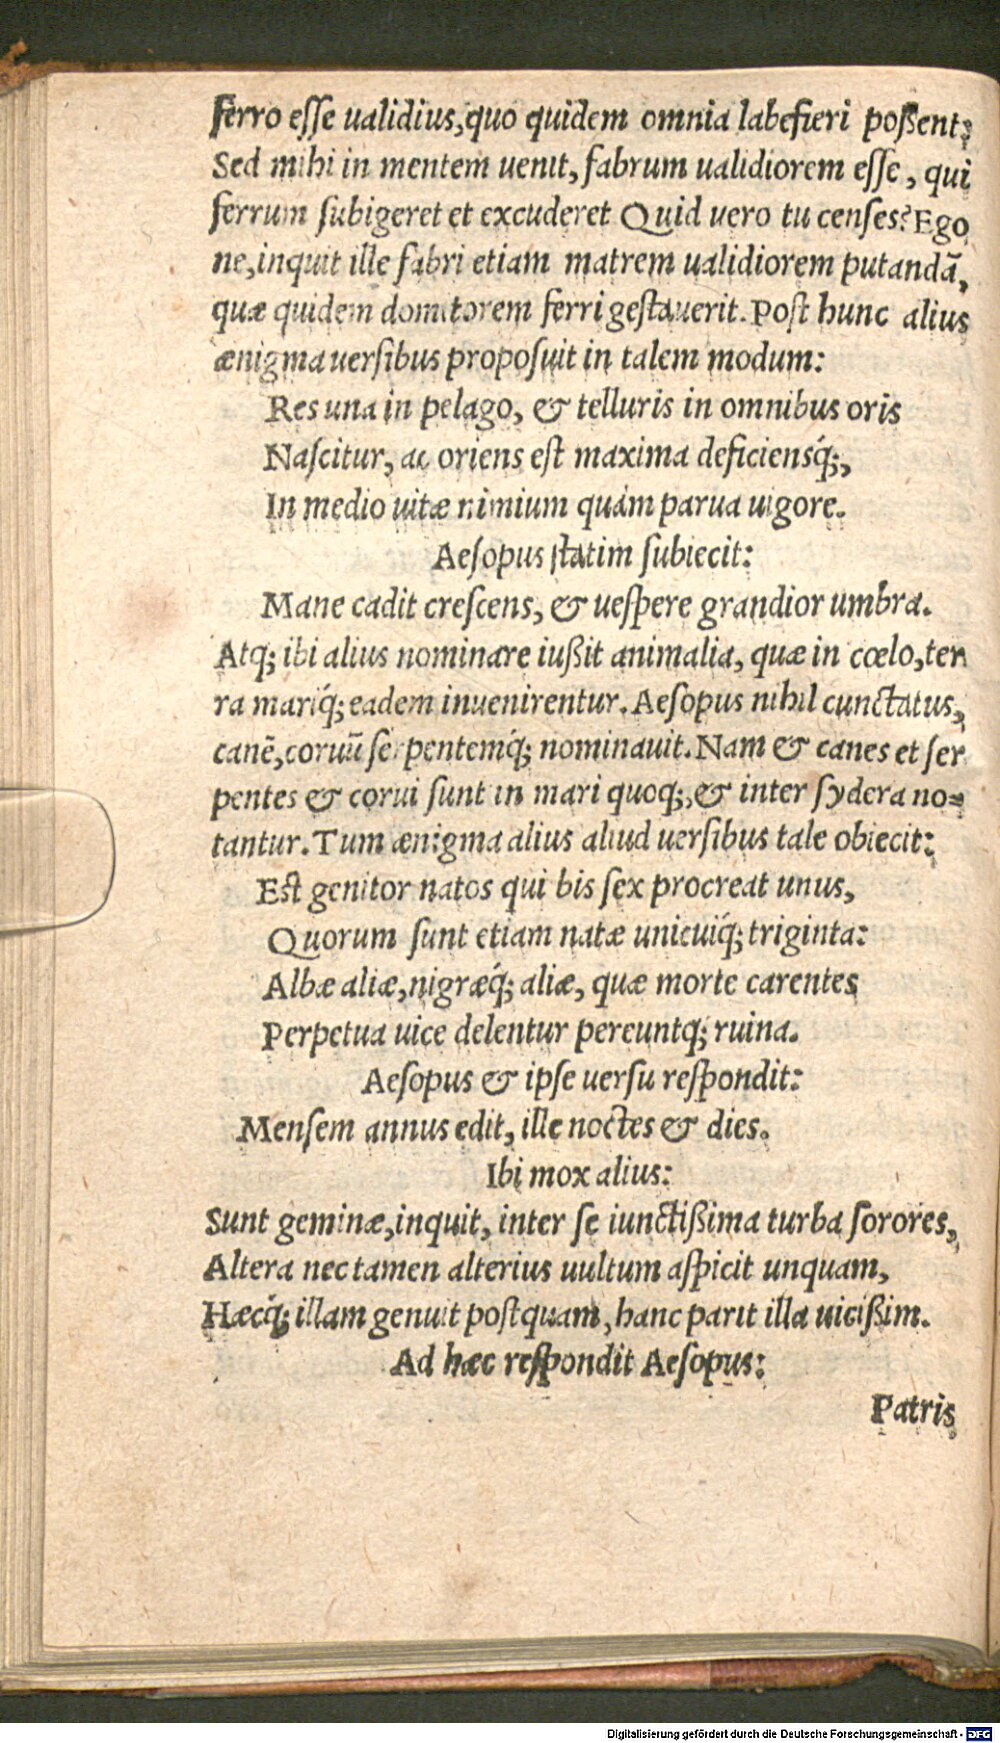 ferro eſſe ualidius, quo quidem omnia labefieri poßent:
Sed mihi in mentem uenit, fabrum ualidiorem eſſe, qui
ferrum ſubigeret et excuderet Quid vero tu cenſes? Ego
ne, inquit ille fabri etiam matrem ualidiorem putandã,
quæ quidem domitorem ferri geſtauerit. Poſt hunc alius
ænigma uerſibus propoſuit in talem modum:
Res una in pelago, & telluris in omnibus oris
Naſcitur, ac oriens eſt maxima deficiensq́;,
In medio uitæ nimium quàm parua uigore.
Aeſopus ſtatim ſubiecit:
Mane cadit creſcens, & ueſpere grandior umbra.
Atq; ibi alius nominare iußit animalia, quæ in cœlo, ter
ra mariq́; eadem inuenirentur. Aeſopus nihil cunctatus,
canẽ, coruũ ſerpentemq́; nominauit. Nam & canes et ſer
pentes & corui ſunt in mari quoq;, & inter ſydera no=
tantur. Tum ænigma alius aliud uerſibus tale obiecit:
Eſt genitor natos qui bis ſex procreat unus,
Quorum ſunt etiam natæ unicuiq́; triginta:
Albæ aliæ, nigræq́; aliæ, quæ morte carentes
Perpetua uice delentur pereuntq; ruina.
Aeſopus & ipſe uerſu reſpondit:
Menſem annus edit, ille noctes & dies.
Ibi mox alius:
Sunt geminæ, inquit, inter ſe iunctißima turba ſorores,
Altera nec tamen alterius uultum aſpicit unquam,
Hæcq́; illam genuit poſtquam, hanc parit illa uicißim.
Ad hæc reſpondit Aeſopus:
Patris
Digitalisierung gefördert durch die Deutsche Forschungsgemeinschaft - DFG